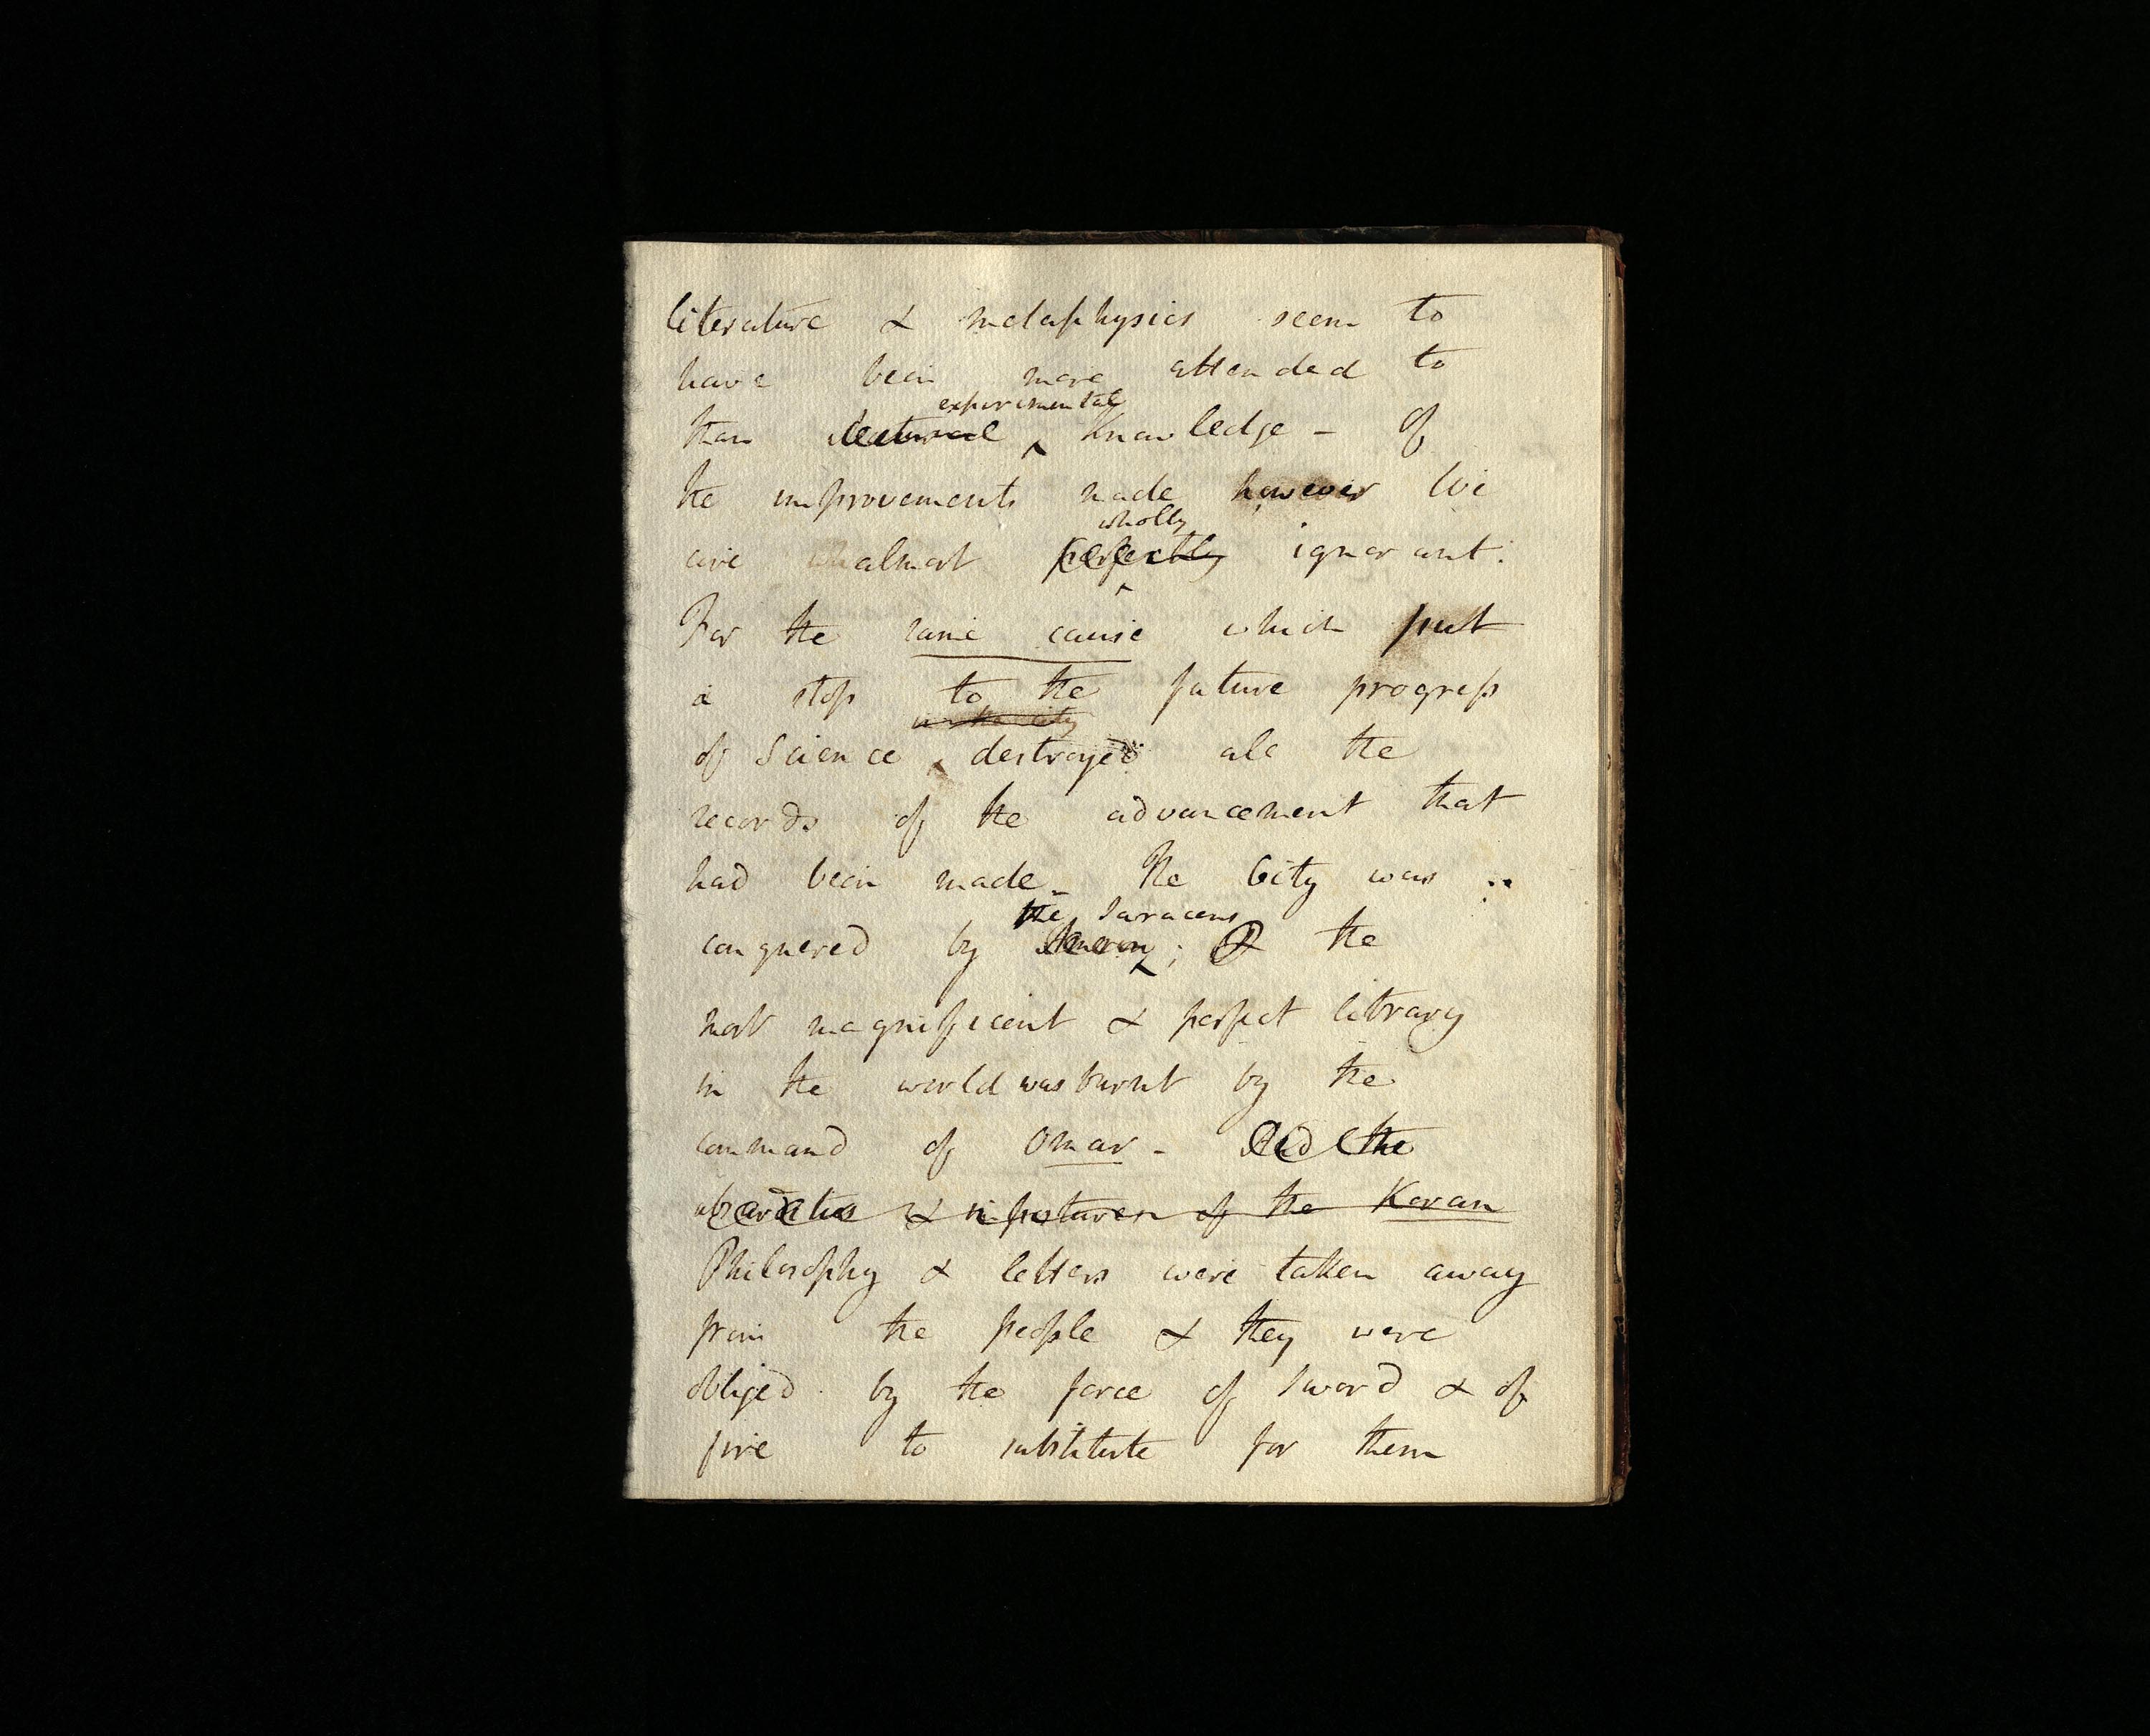 literature & metaphysics seem to
have been more attended to
experimental
than Natural ^ Knowledge - of
the improvements made however We
wholly
are almost perfectly ignorant.
For the same cause which put
a stop to the future progress
in the city
of Science destroyed all the
records of the advancement that
had been made_ The City was
the Saracens
conquered by ; & the
most magnificent & perfect library
in the world was burnt by the
command of Omar - And the
absurdities & impostures of the Koran
Philosophy & letters were taken away
from the people & they were
obliged by the force of Sword & of
fire to substitute for them